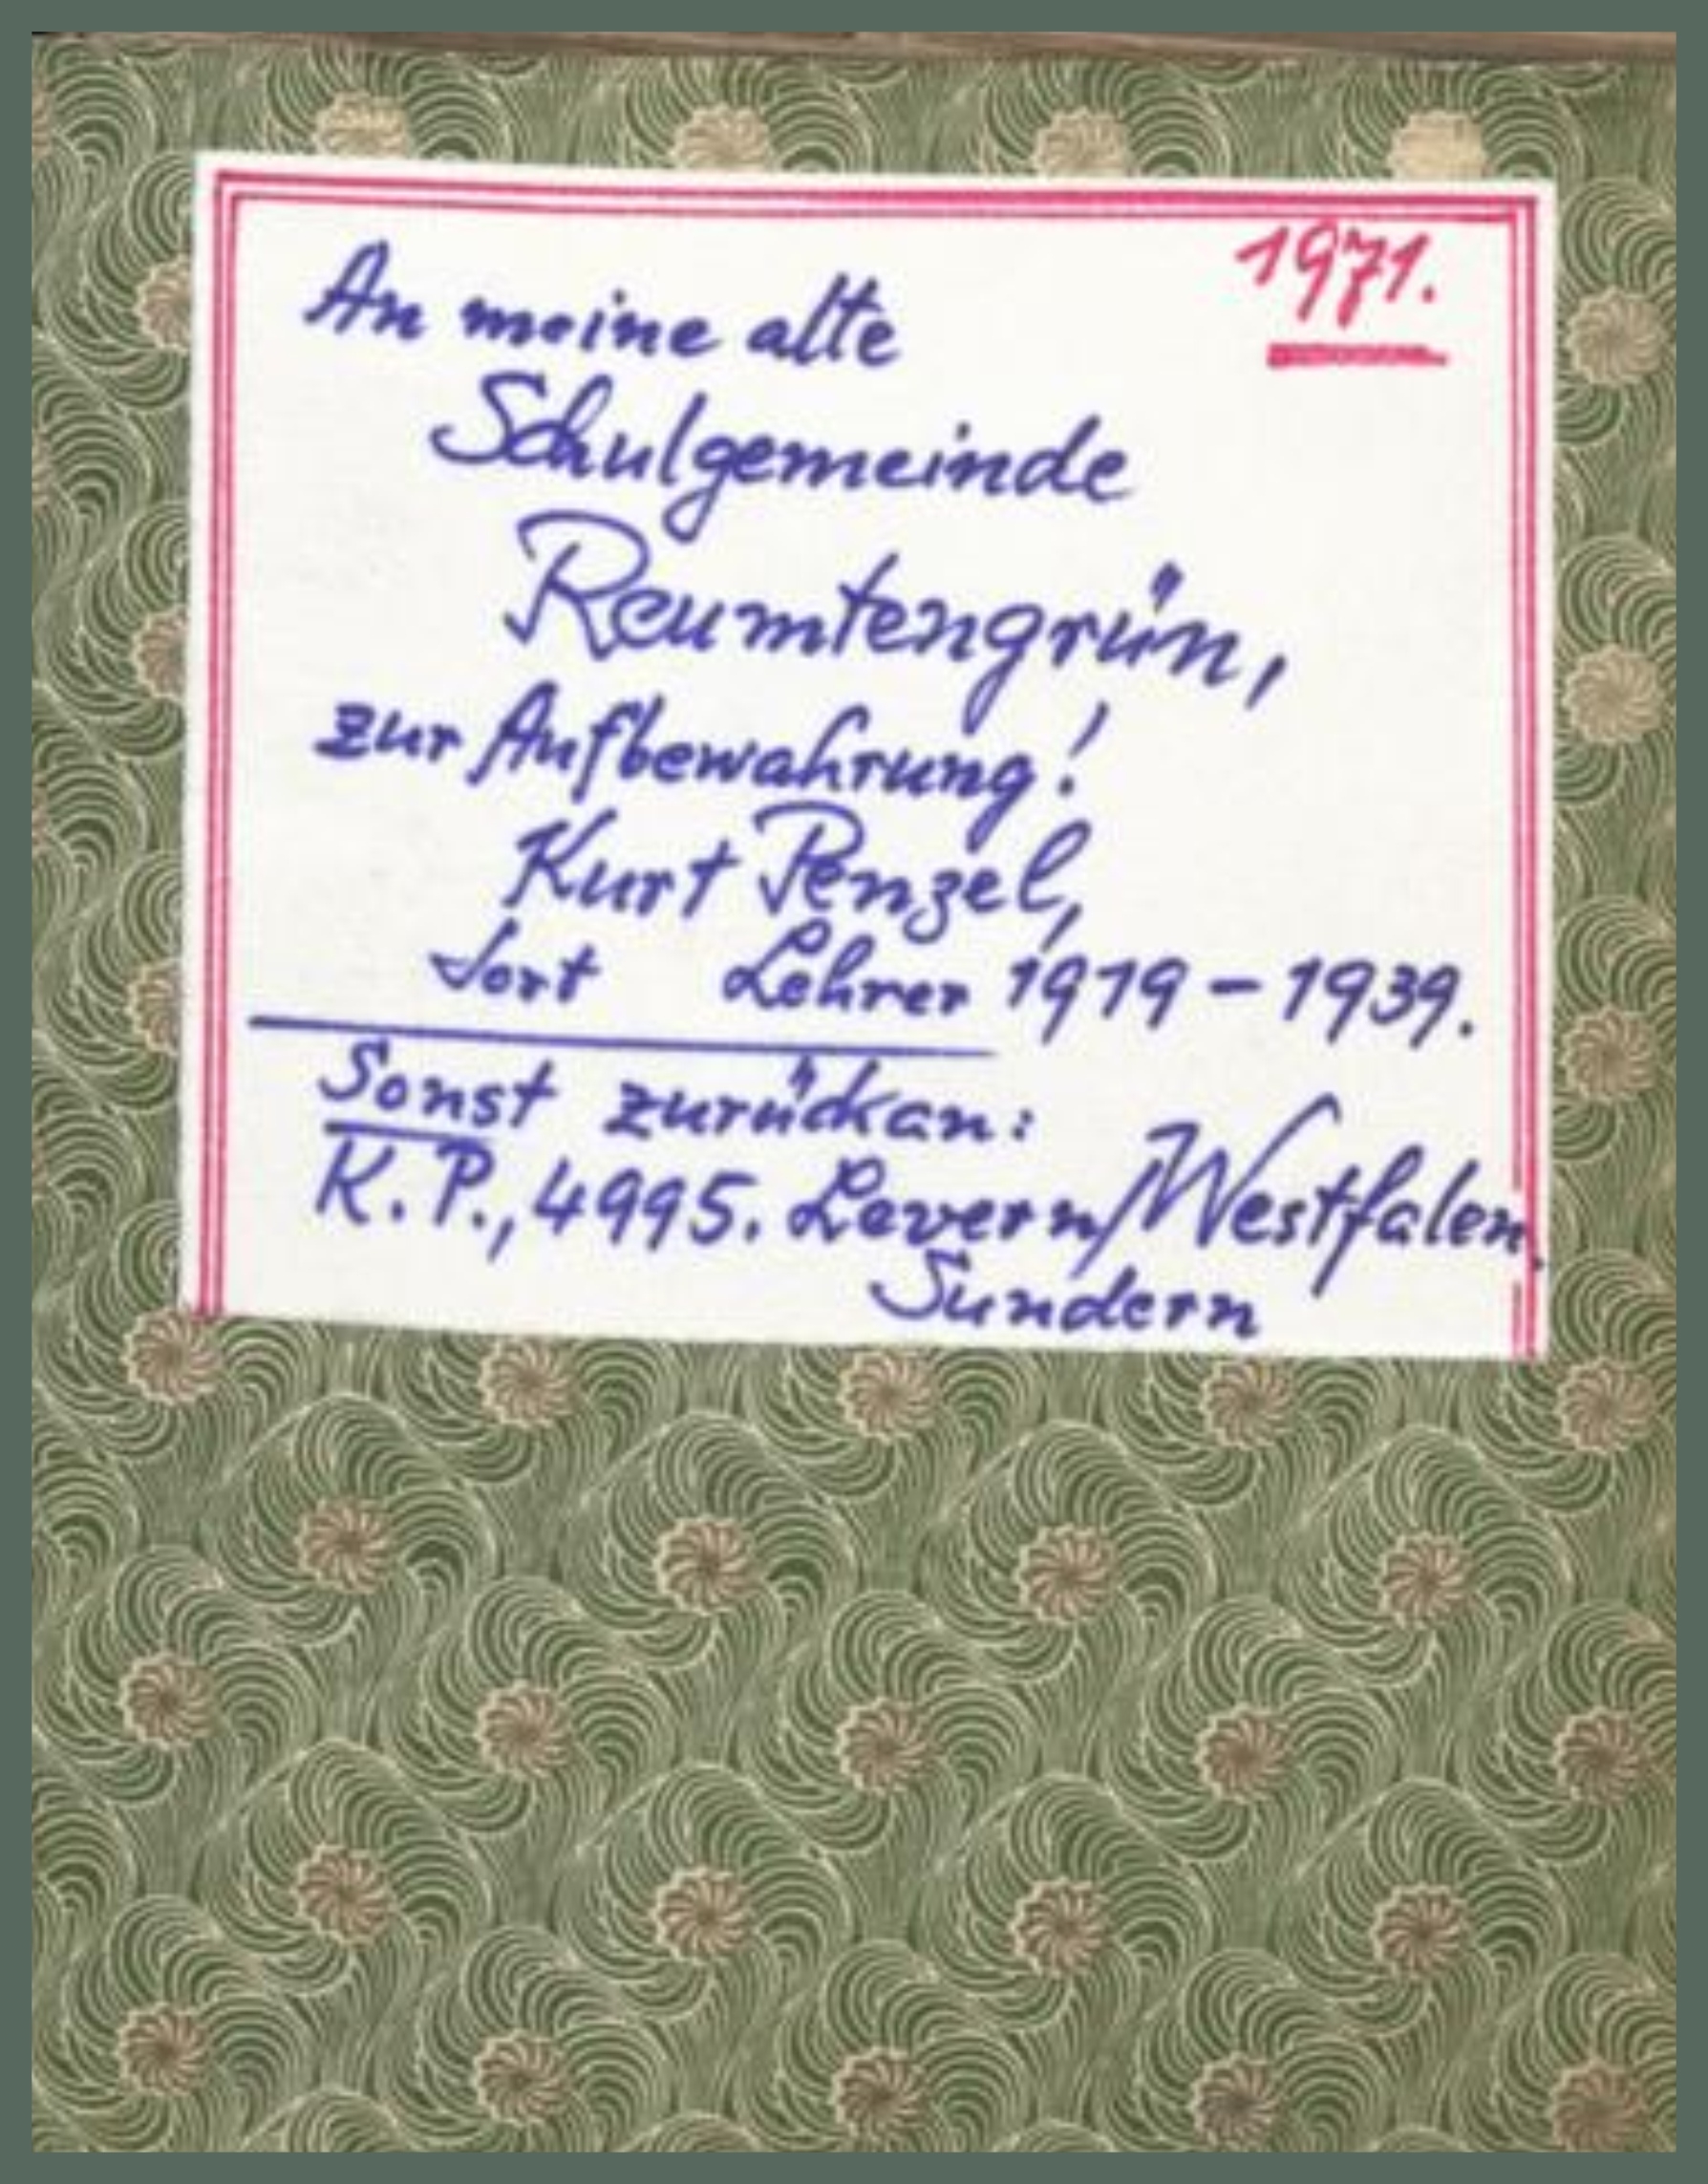 1971.
An meine alte
Schulgemeinde
Reumtengrün,
zur Aufbewahrung!
Kurt Penzel,
dort Lehrer 1919-1939.
Sonst zurückan:
K.P., 4995. Levern/Westfalen.
Sundern